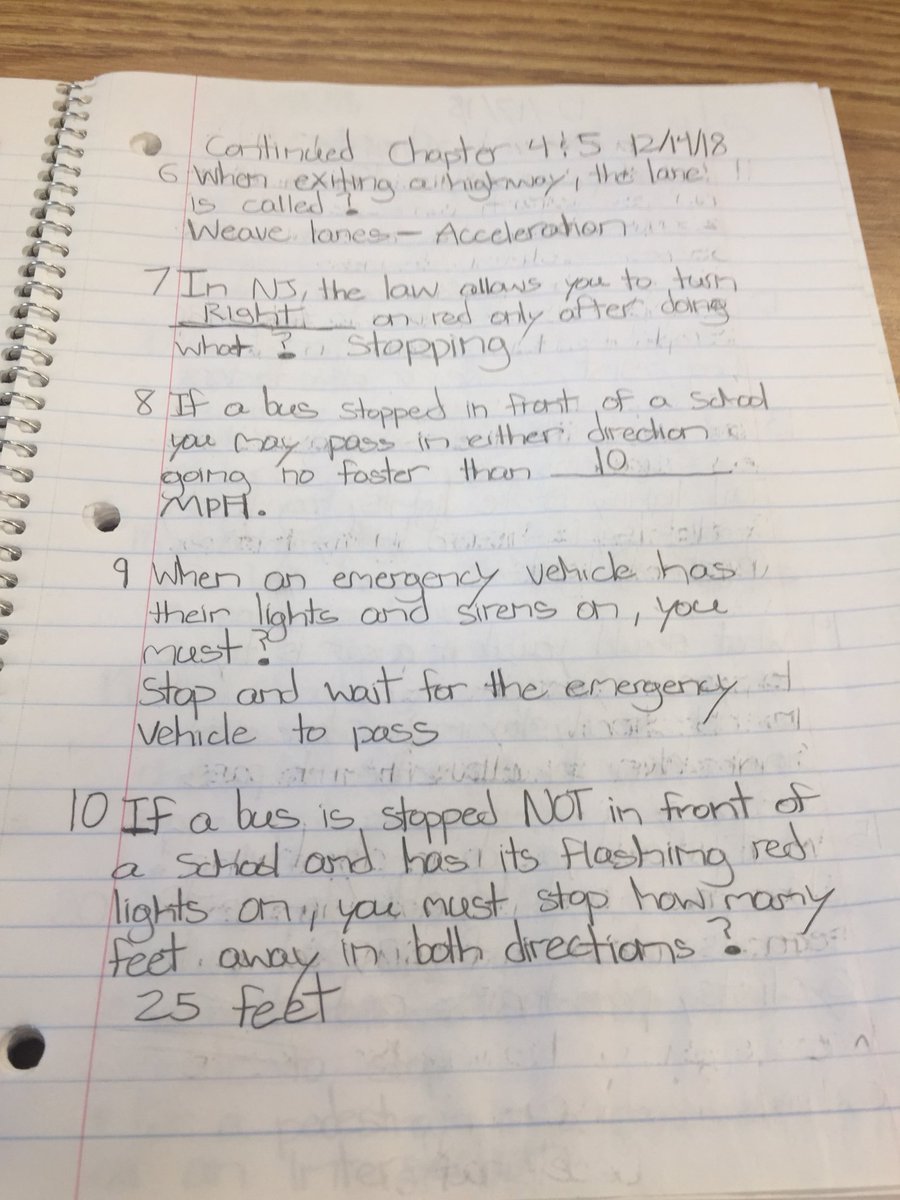 Continued Chapter 4 & 5 12/14/18
6 When exiting a highway, the lane
is called?
Weave lanes - Acceleration
7 In NJ, the law allows you to turn
Right on red only after doing
what? Stopping
8 If a bus stopped in front of a school
you may pass in either direction
going no faster than 10
MPH.
9 When an emergency vehicle has
their lights and sirens on, you
must?
Stop and wait for the emergency
vehicle to pass
10 If a bus is stopped NOT in front of
a school and has its flashing red
lights on, you must stop how many
feet away in both directions?
25 feet